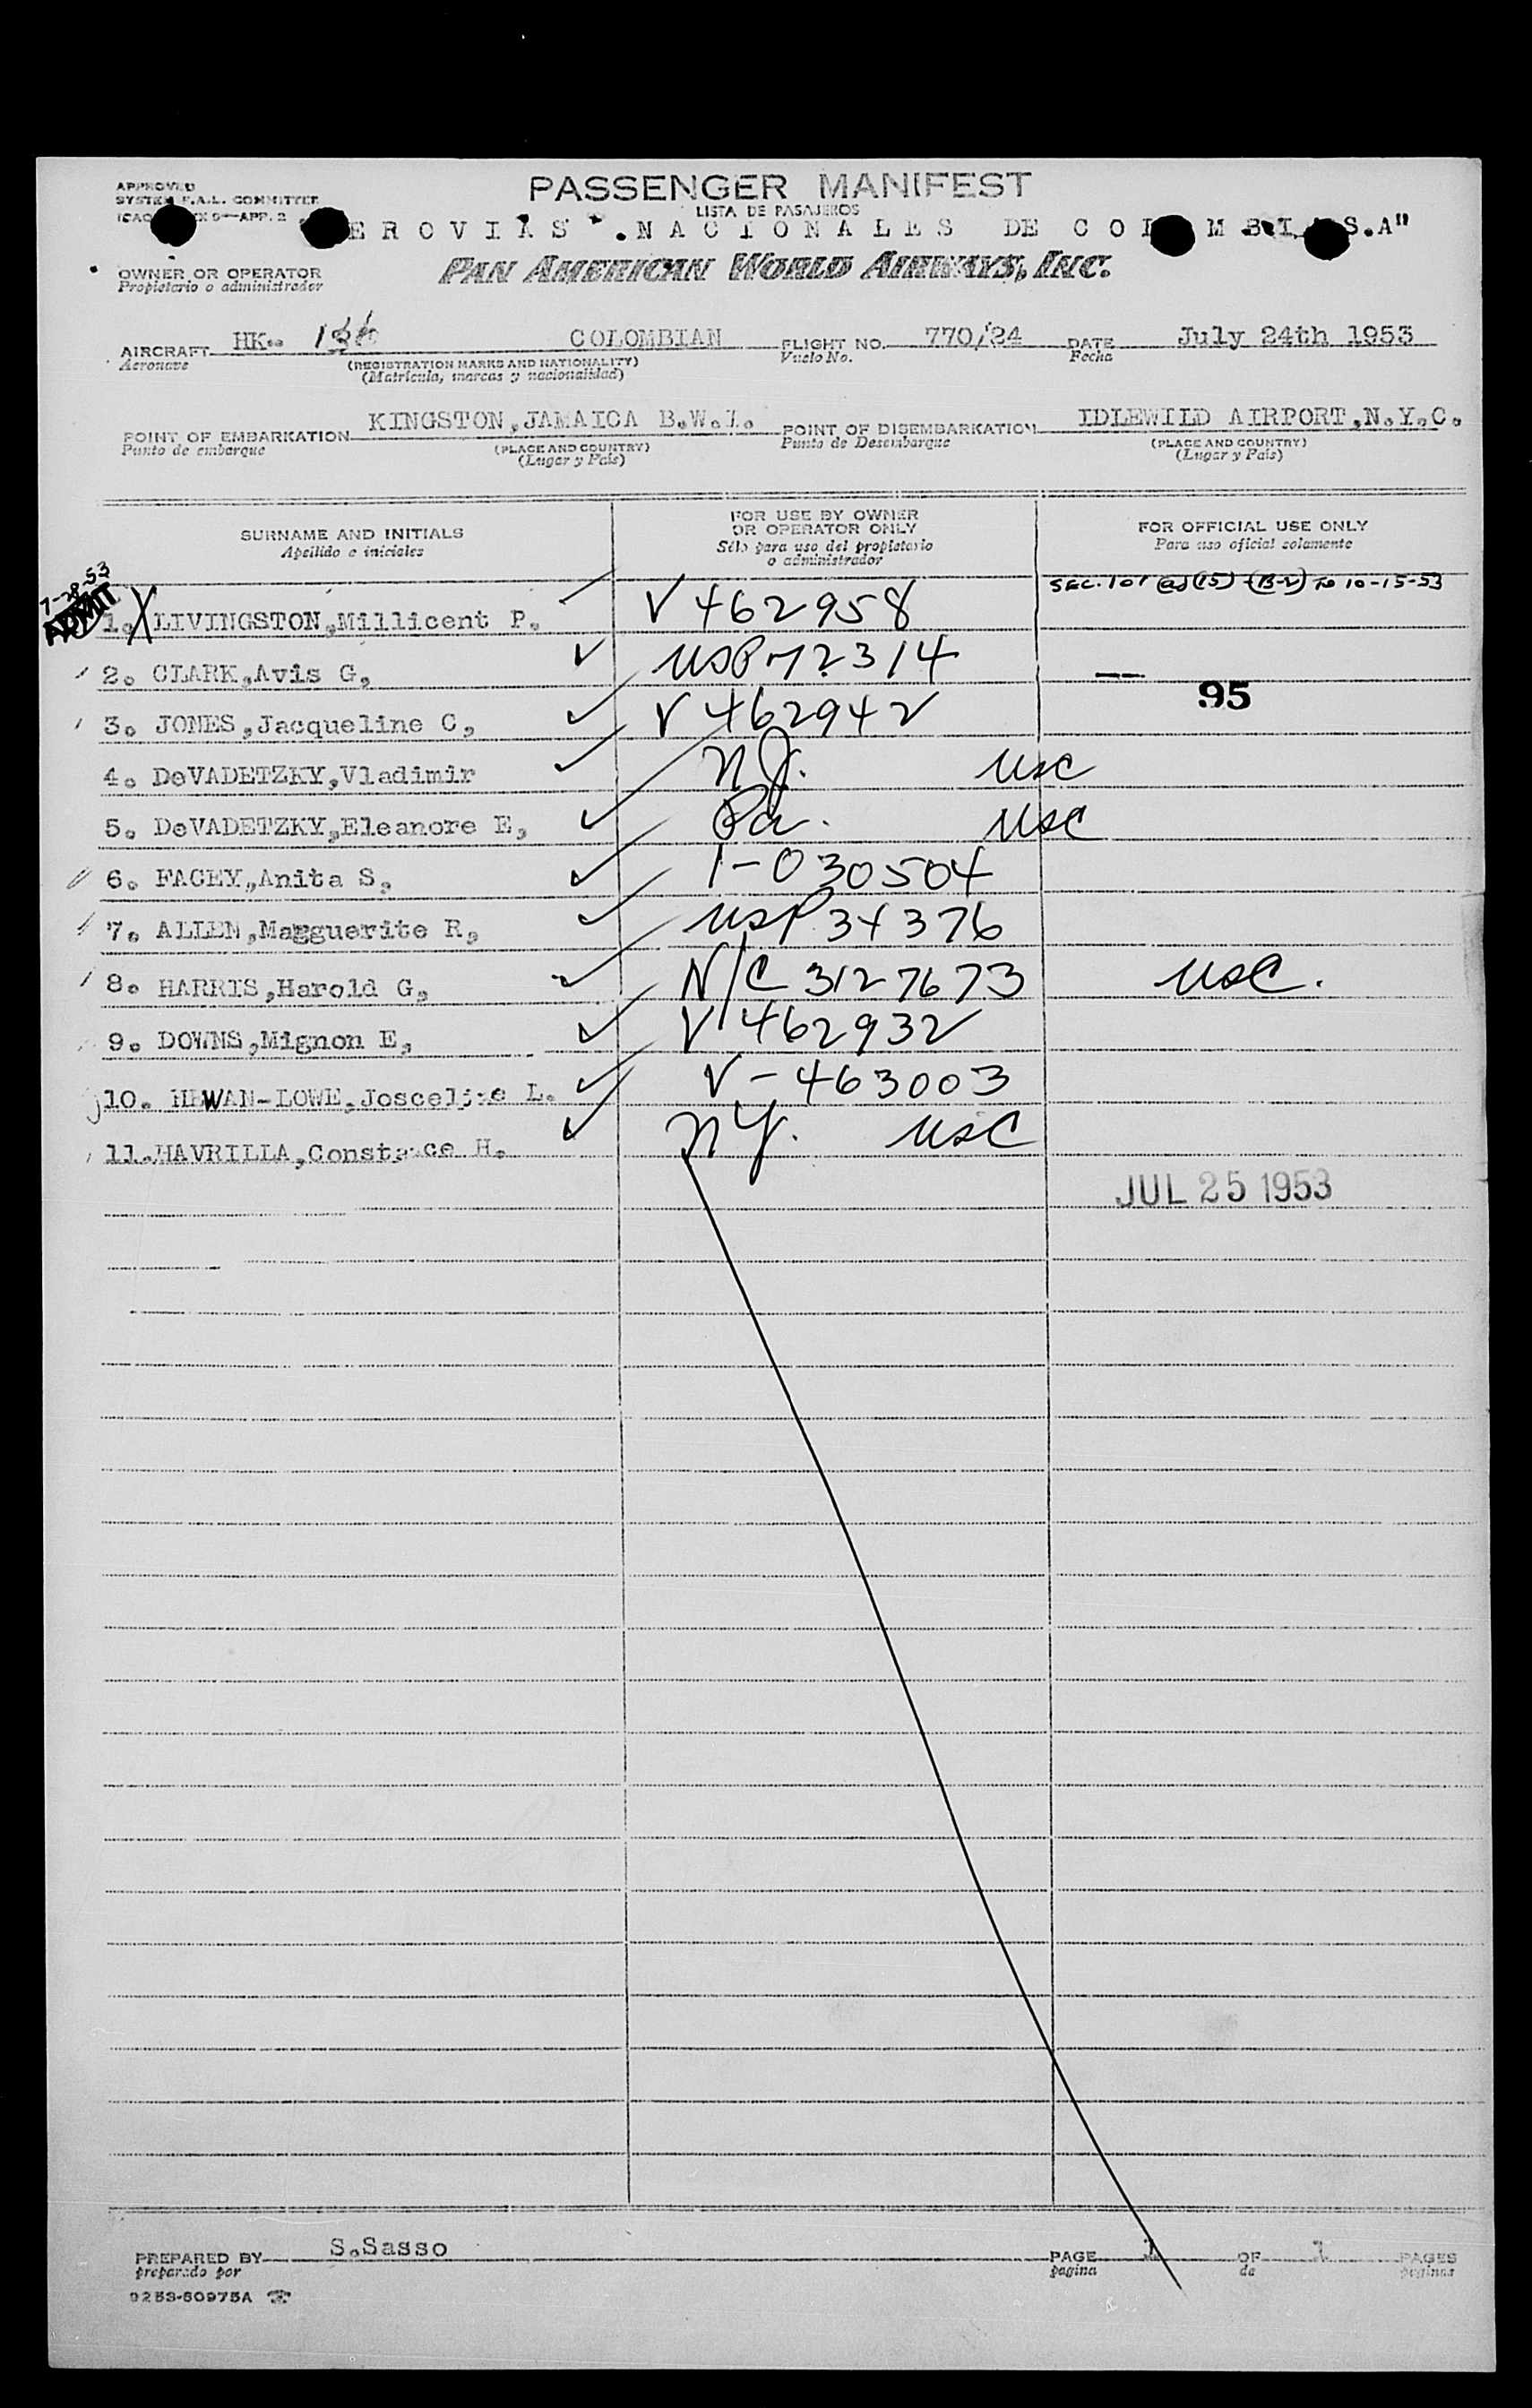 APPROVED
SYSTEM F.A.L. COMMITTEE
ICAO X 9—APP. 2
PASSENGER MANIFEST
LISTA DE PASAJEROS
EROVIAS .NACIONALES DE COL MBI S.A"
OWNER OR OPERATOR
Propietario o administrador
PAN AMERICAN WORLD AIRWAYS, INC.
AIRCRAFT HK- COLOMBIAN FLIGHT NO. 770/24 DATE July 24th 1953
Aeronave (REGISTRATION MARKS AND NATIONALITY) Vuelo No. Fecha
(Matrícula, marcas y nacionalidad)
POINT OF EMBARKATION KINGSTON,JAMAICA B.W.I. POINT OF DISEMBARKATION IDLEWILD AIRPORT,N.Y.C.
Punto de embarque (PLACE AND COUNTRY) Punto de Desembarque (PLACE AND COUNTRY)
(Lugar y País) (Lugar y País)
SURNAME AND INITIALS FOR USE BY OWNER OR OPERATOR ONLY FOR OFFICIAL USE ONLY
Apellido e iniciales Sólo para uso del propietario o administrador Para uso oficial solamente
7-28-53
ADMIT
SEC. 101 (a) (15) (B-2) to 10-15-53
1. X LIVINGSTON,Millicent P. V 462958
2. CLARK,Avis G, USP 72314
95
3. JONES,Jacqueline C, V 462942
4. DeVADETZKY,Vladimir N.J. USC
5. DeVADETZKY,Eleanore E, Pa. USC
6. FACEY,Anita S, 1-030504
7. ALLEN,Magguerite R, USP 34376
8. HARRIS,Harold G, N/C 3127673 USC.
9. DOWNS,Mignon E, V 462932
10. HEWAN-LOWE,Josceline L. V-463003
11.HAVRILLA,Constance H. N.Y. USC
JUL 25 1953
PREPARED BY S.Sasso PAGE 1 OF 1 PAGES
preparado por pagina de paginas
9253-50975A